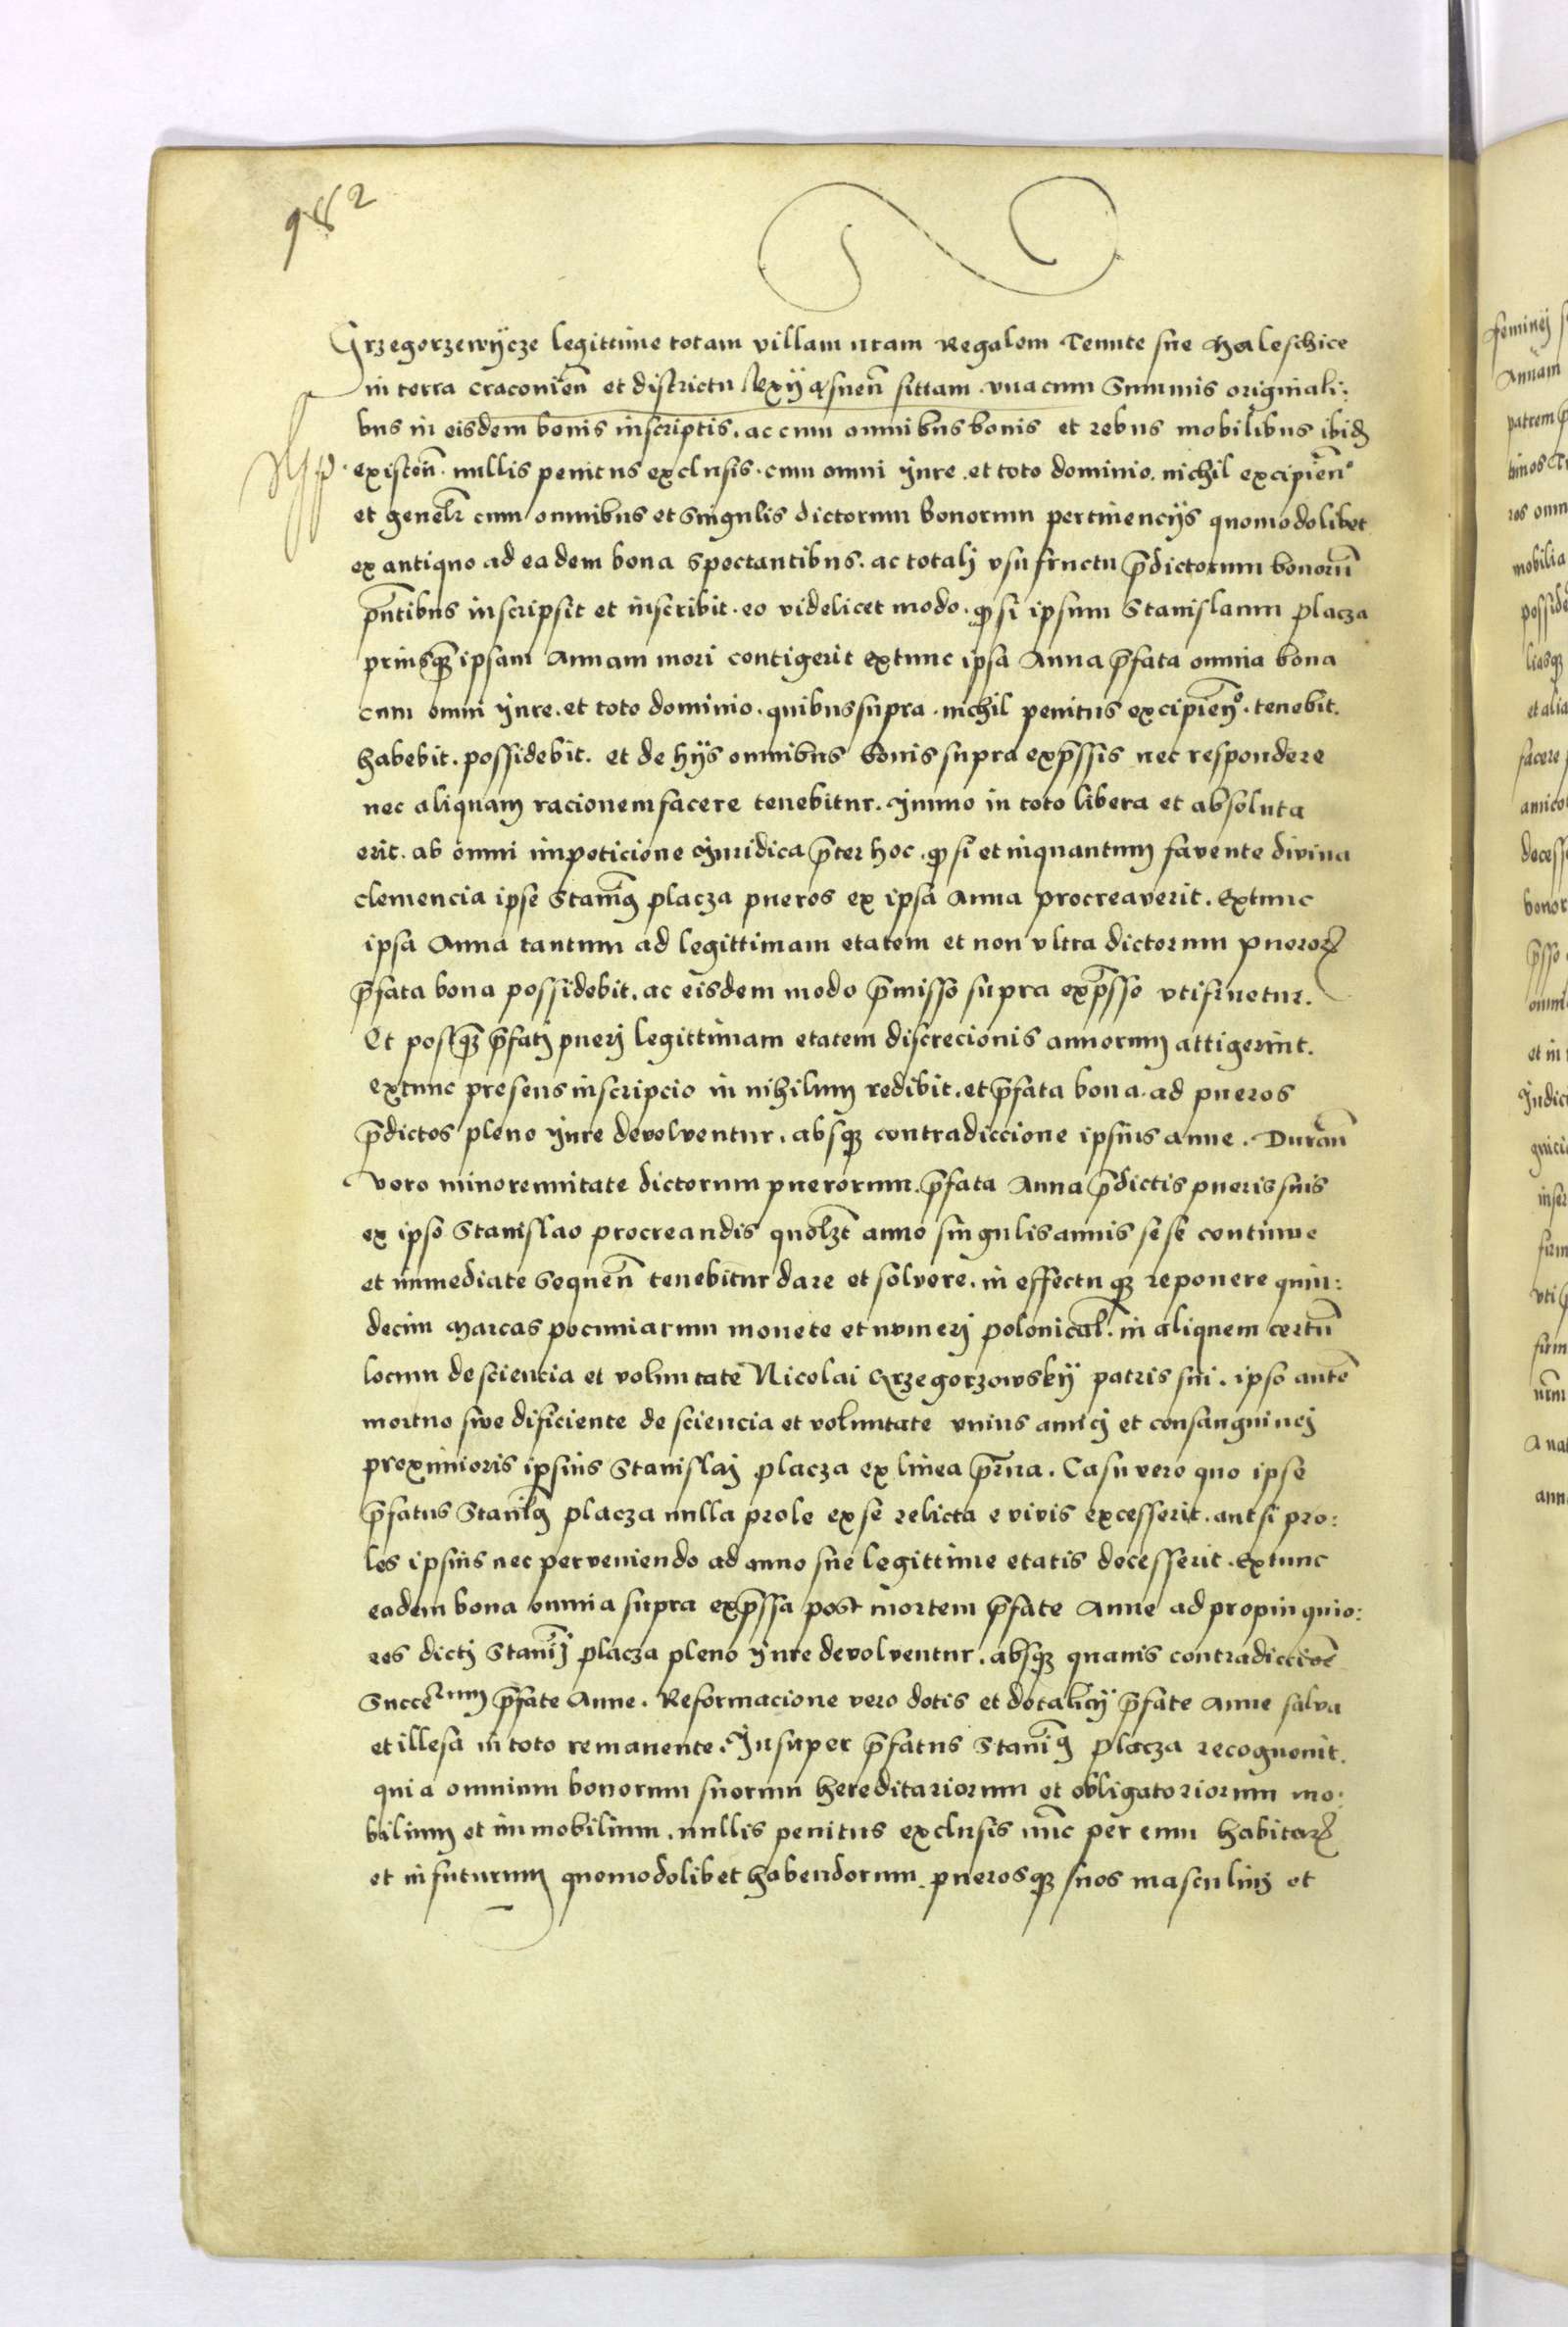 982
Grzegorzewÿcze legittime totam villam nram Regalem Tenute sue Haleschice
in terra cracovien̄ et districtu Xyąsnen̄ sittam . vnacum Summis originali:
bus in eisdem bonis inscriptis . ac cum omnibus bonis et rebus mobilibus ibid
existen̄ . nullis penitus exclusis . cum omni iure . et toto dominio . nichil excipien̄°
et genelr cum omnibus et singulis dictorum bonorum pertinencÿs quomodolibet
ex antiquo ad eadem bona spectantibus . ac totalj vsufructu p̄dictorum bonorū
pn̄tibus inscripsit et inscribit . eo videlicet modo . qz si ipsum Stanislaum placza
priusqz ipsam Annam mori contigerit extunc ipsa Anna p̄fata omnia bona
cum omni iure . et toto dominio . quibus supra . nichil penitus excipien̄° . tenebit .
habebit . possidebit . et de hÿs omnibus bonis supra exp̄ssis nec respondere
nec aliquam racionem facere tenebitur . ymmo in toto libera et absoluta
erit . ab omni impeticione iuridica p̄ter hoc . qz si et inquantum favente divina
clemencia ipse Stanis̄ placza pueros ex ipsa Anna procreaverit . Extunc
ipsa Anna tantum ad legittimam etatem et non vltra dictorum pueror
p̄fata bona possidebit . ac eisdem modo p̄misso supra exp̄sso vtifruetur .
Et postqz p̄fatj puerj legittimam etatem discrecionis annorum attigerint .
extunc presens inscripcio in nihilum redibit . et p̄fata bona . ad pueros
p̄dictos pleno iure devolventur . absqz contradiccione ipsius anne . Duran̄
vero minorennitate dictorum puerorum . p̄fata Anna p̄dictis pueris suis
ex ipso Stanislao procreandis quolzt anno singulis annis sese continue
et immediate sequen̄ tenebitur dare et solvere . in effectuqz reponere quin:
decim Marcas pecuniarum monete et numerj polonical . in aliquem certū
locum de sciencia et voluntate Nicolai Grzegorzowskÿ patris sui . ipso autē
mortuo sive dificiente de sciencia et voluntate vnius amicj et consanguinej
proximioris ipsius Stanislaj placza ex linea p̄rna . Casu vero quo ipse
p̄fatus Stanis̄ placza nulla prole ex se relicta e vivis excesserit . aut si pro:
les ipsius nec perveniendo ad anno sue legittime etatis decesserit . Extunc
eadem bona omnia supra exp̄ssa post mortem p̄fate Anne ad propinquio:
res dictj Stanis̄j placza pleno iure devolventur . absqz quavis contradiccionē
Succerum p̄fate Anne . Reformacione vero dotis et dotalicÿ p̄fate Anne salva
et illesa in toto remanente . Insuper p̄fatus Stanis̄ Placza recognovit .
quia omnium bonorum suorum hereditariorum et obligatoriorum mo:
bilium et immobilium . nullis penitus exclusis nūc per eum habitar
et in futurum quomodolibet habendorum . puerosqz suos masculinj et